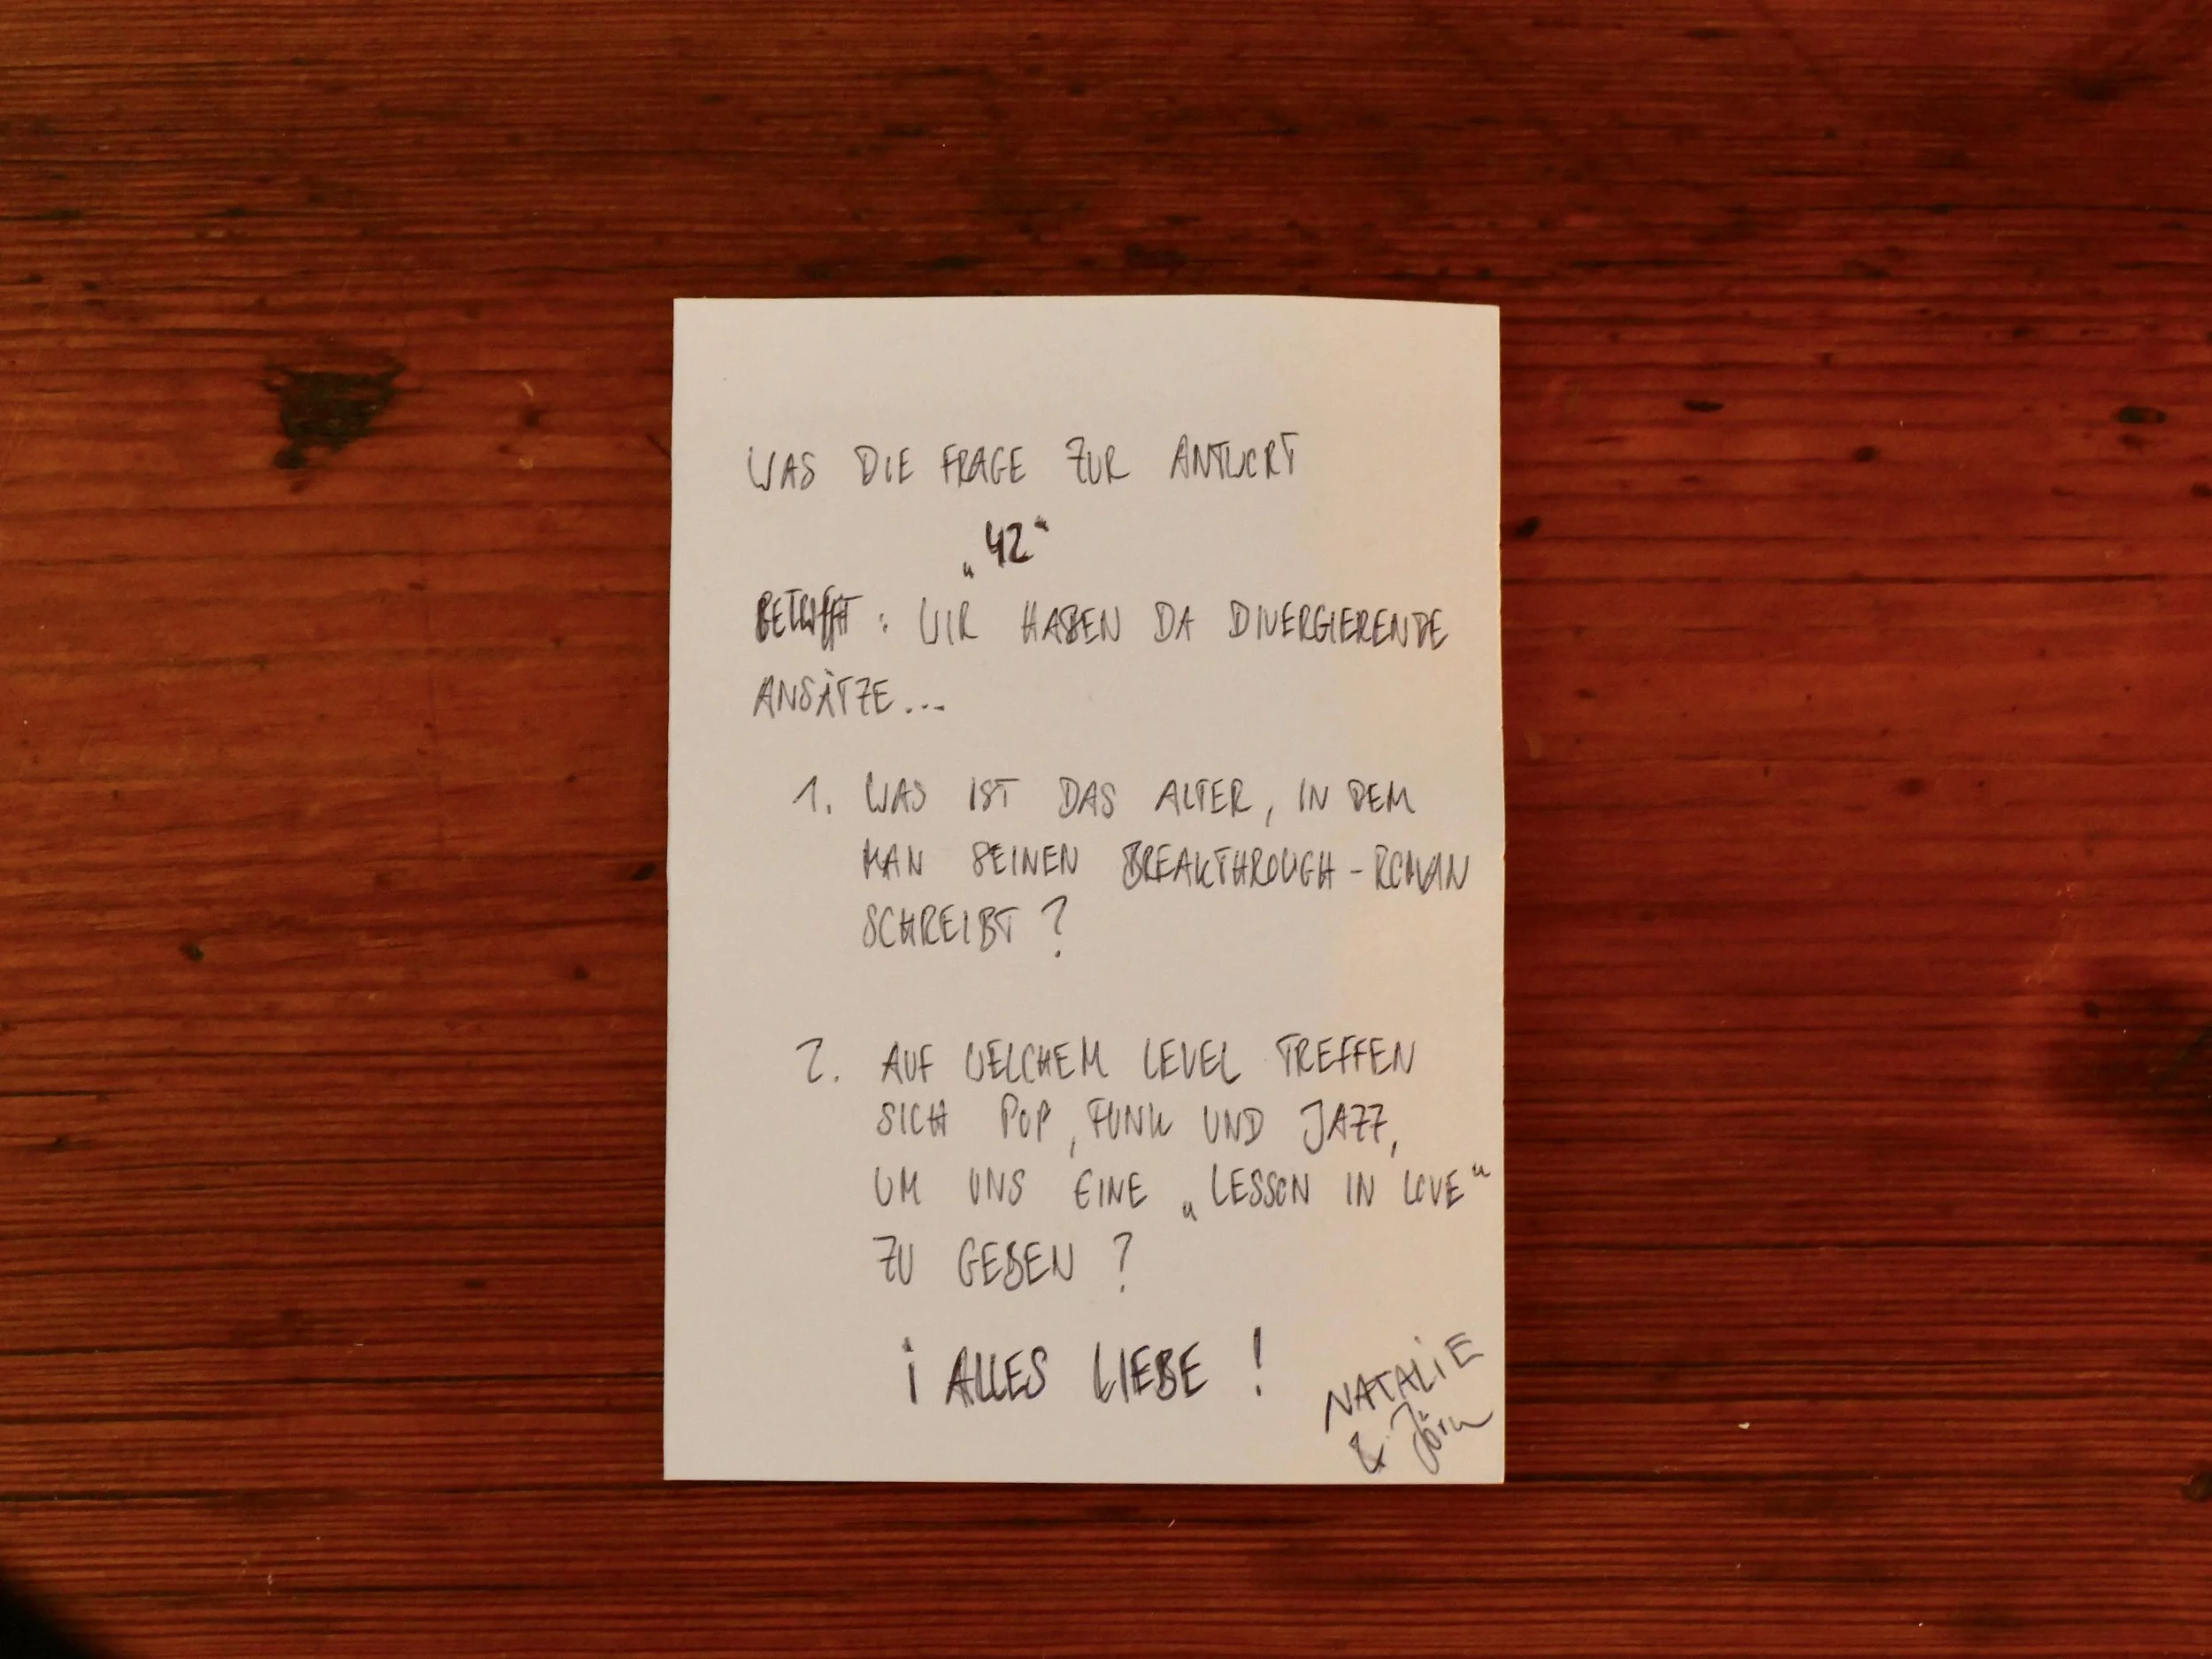 WAS DIE FRAGE ZUR ANTWORT
„42“
BETRIFFT: WIR HABEN DA DIVERGIERENDE
ANSÄTZE...
1. WAS IST DAS ALTER, IN DEM
MAN SEINEN BREAKTHROUGH-ROMAN
SCHREIBT?
2. AUF WELCHEM LEVEL TREFFEN
SICH POP, FUNK UND JAZZ,
UM UNS EINE „LESSON IN LOVE“
ZU GEBEN?
¡ ALLES LIEBE !
NATALIE
& Jörn